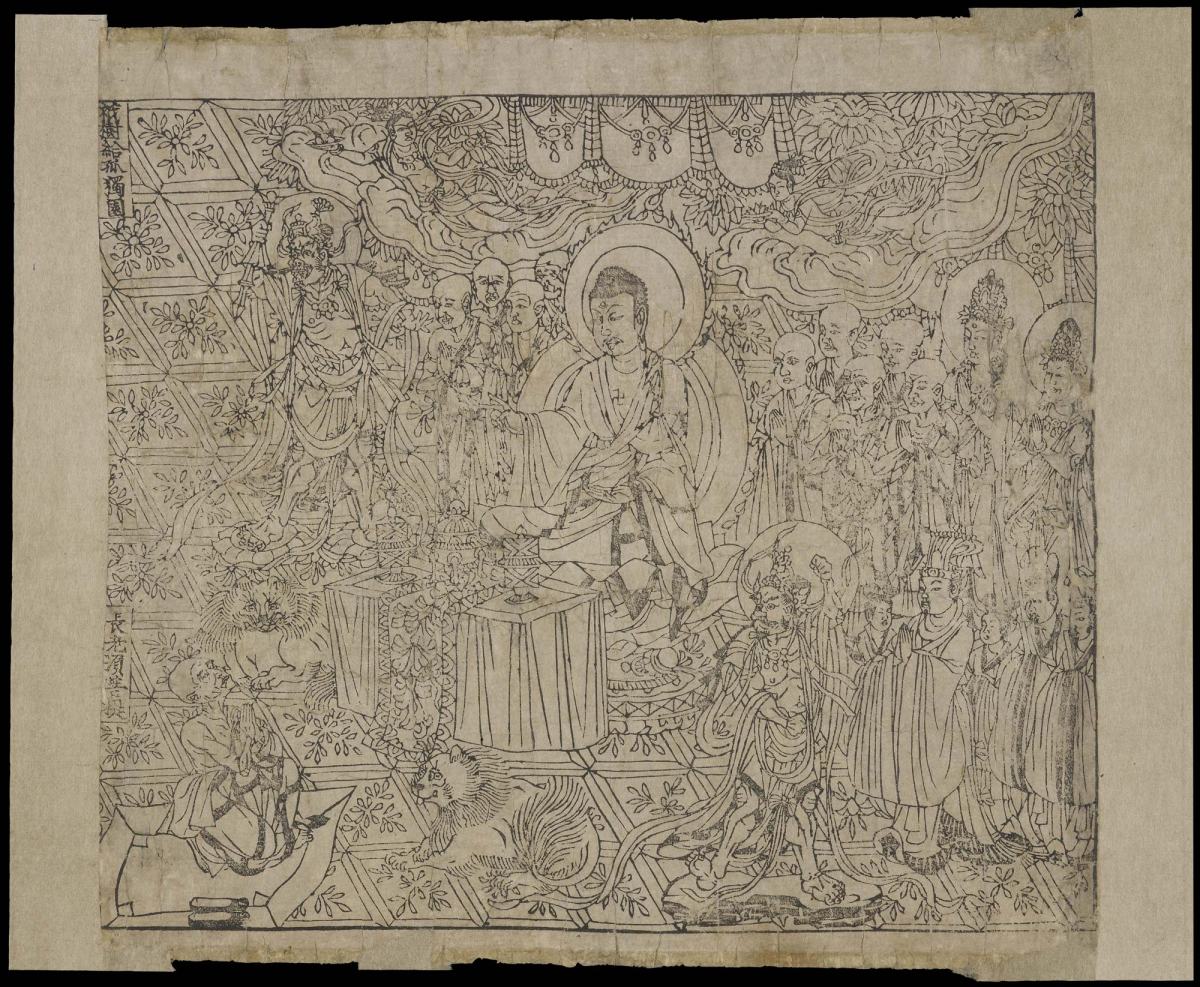 祇樹給孤獨園
長老須菩提